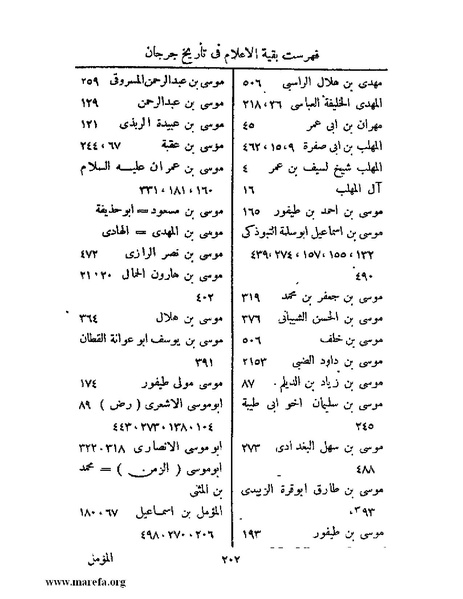 فهرست بقية الاعلام فى تأريخ جرجان
مهدى بن هلال الراسبى ٥٠٦
المهدى الخليفة العباسى ٢٦، ٢١٨
مهران بن ابى عمر ٤٥
المهلب بن ابى صفرة ٩، ١٥، ٤٦٢
المهلب شيخ لسيف بن عمر ٤
آل المهلب ١٦
موسى بن احمد بن طيفور ١٦٥
موسى بن اسماعيل ابوسلمة التبوذكى
١٣٢، ١٥٥، ١٥٧، ٢٧٤، ٤٣٩
٤٩٠
موسى بن جعفر بن محمد ٣١٩
موسى بن الحسن الشيبانى ٣٧٦
موسى بن خلف ٥٠٦
موسى بن داود الضبى
موسى بن زياد بن الديلم ٨٧
موسى بن سليمان اخو ابى طيبة
٢٤٥
موسى بن سهل البغدادى ٢٧٣
٤٨٨
موسى بن طارق ابوقرة الزبيدى
٣٩٣
موسى بن طيفور ١٩٣
موسى بن عبدالرحمن المسروقى ٢٥٩
موسى بن عبدالرحمن ١٢٩
موسى بن عبيدة الربذى ١٢١
موسى بن عقبة ٦٧، ٢٤٤
موسى بن عمران عليه السلام
١٦٠، ١٨١، ٣٣١
موسى بن مسعود = ابوحذيفة
موسى بن المهدى = الهادى
موسى بن نصر الرازى ٤٧٢
موسى بن هارون الحمال ٢٠، ٢١
٤٠٢
موسى بن هلال ٣٦٤
موسى بن يوسف ابو عوانة القطان
٣٩١
موسى مولى طيفور ١٧٤
ابوموسى الاشعرى ( رض ) ٨٩
١٠٤، ١٣٨، ٢٧٣، ٤٤٣
ابوموسى الانصارى ٣١٨، ٣٢٢
ابوموسى ( الزمن ) = محمد
بن المثنى
المؤمل بن اسماعيل ٦٧، ١٨٠
٢٠٦، ٢٧٠، ٤٩٨
٢٠٢ المؤمل
www.marefa.org